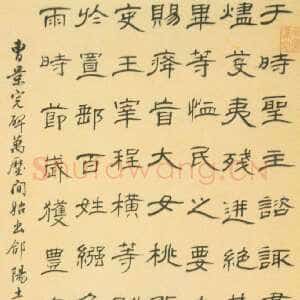 于時聖主諮諏
燼芟夷殘迸絕其
畢等恤民之要
賜癃盲大女桃
吏王宰程橫等
於置郵百姓繈
雨時節歲獲豐
曹景完碑萬歷間始出郃陽土
Shufawang.CN